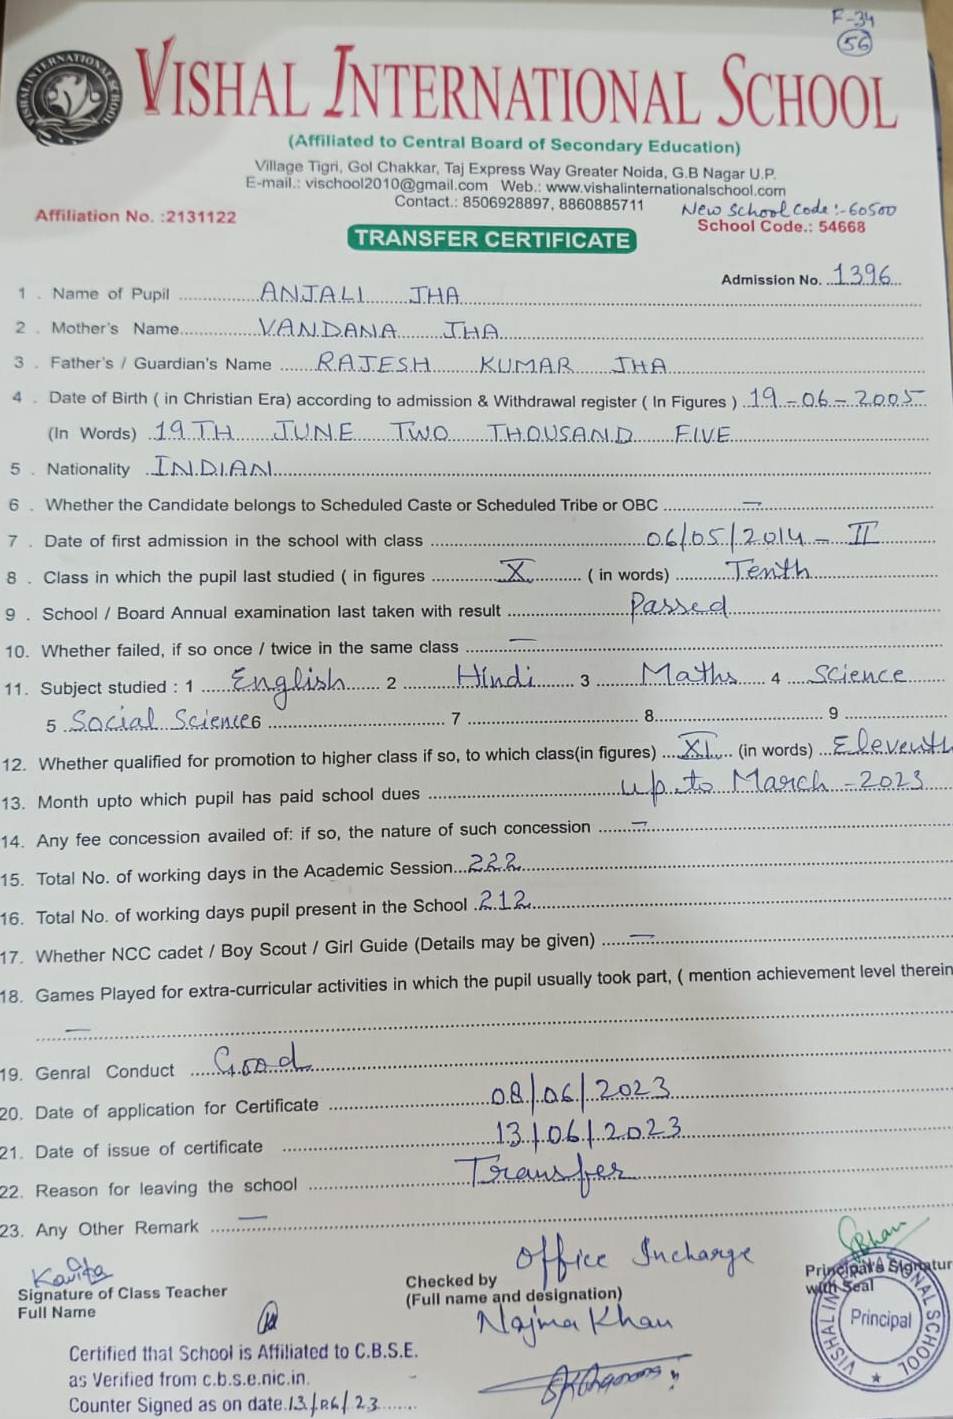 F-34
56
VISHAL INTERNATIONAL SCHOOL
VISHAL INTERNATIONAL SCHOOL
(Affiliated to Central Board of Secondary Education)
Village Tigri, Gol Chakkar, Taj Express Way Greater Noida, G.B Nagar U.P.
E-mail.: vischool2010@gmail.com Web.: www.vishalinternationalschool.com
Contact.: 8506928897, 8860885711
New School Code:-60500
Affiliation No. :2131122 School Code.: 54668
TRANSFER CERTIFICATE
Admission No. 1396
1 . Name of Pupil ANJALI JHA
2 . Mother's Name VANDANA JHA
3 . Father's / Guardian's Name RAJESH KUMAR JHA
4 . Date of Birth ( in Christian Era) according to admission & Withdrawal register ( In Figures ) 19-06-2005
(In Words) 19TH JUNE TWO THOUSAND FIVE
5 . Nationality INDIAN
6 . Whether the Candidate belongs to Scheduled Caste or Scheduled Tribe or OBC —
7 . Date of first admission in the school with class 06/05/2014 - II
8 . Class in which the pupil last studied ( in figures X ( in words) Tenth
9 . School / Board Annual examination last taken with result Passed
10. Whether failed, if so once / twice in the same class —
11. Subject studied : 1 English 2 Hindi 3 Maths 4 Science
5 Social Science 6 7 8 9
12. Whether qualified for promotion to higher class if so, to which class(in figures) XI (in words) Eleventh
13. Month upto which pupil has paid school dues up to March-2023
14. Any fee concession availed of: if so, the nature of such concession —
15. Total No. of working days in the Academic Session 222
16. Total No. of working days pupil present in the School 212
17. Whether NCC cadet / Boy Scout / Girl Guide (Details may be given) —
18. Games Played for extra-curricular activities in which the pupil usually took part, ( mention achievement level therein
—
19. Genral Conduct Good
20. Date of application for Certificate 08/06/2023
21. Date of issue of certificate 13/06/2023
22. Reason for leaving the school Transfer
23. Any Other Remark —
Kavita
Signature of Class Teacher
Full Name
Office Incharge
Checked by
(Full name and designation)
Najma Khan
Principal's Signatur
with Seal
VISHAL INTERNATIONAL SCHOOL
Principal
Certified that School is Affiliated to C.B.S.E.
as Verified from c.b.s.e.nic.in.
Counter Signed as on date 13/06/23